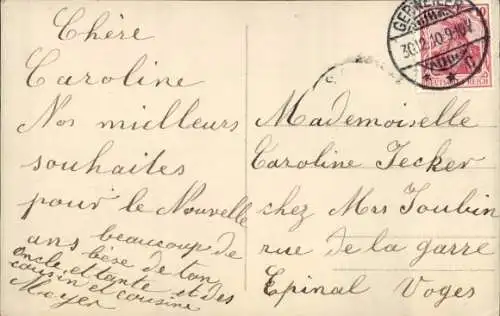 Chère
Caroline
Nos milleurs
souhaites
pour le Nouvelle
ans beaucoup de
bèse de ton
oncle et tante et des
cousin et cousine
Mayer
GEBWEILER
30.12.10.9-10V
C
DEUTSCHES REICH
Mademoiselle
Caroline Jecker
chez Mrs Joubin
rue de la garre
Epinal Voges